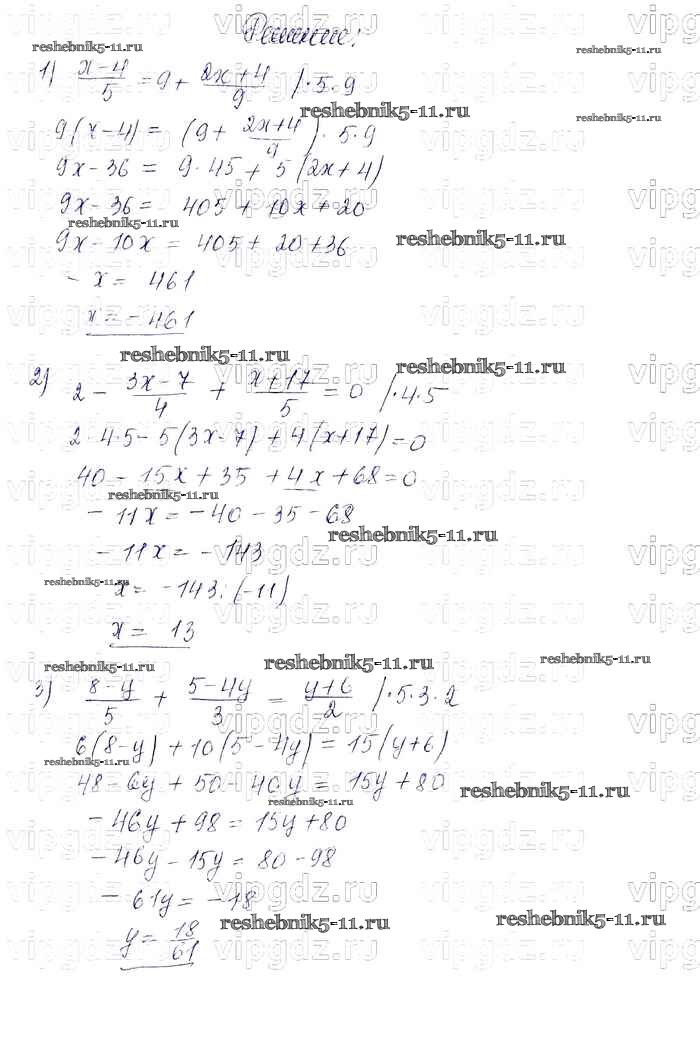 Решение:
reshebnik5-11.ru
1) (x-4)/5 = 9 + (2x+4)/9 /·5·9
reshebnik5-11.ru
9(x-4) = (9 + (2x+4)/9)·5·9
9x-36 = 9·45 + 5(2x+4)
9x-36 = 405 + 10x + 20
reshebnik5-11.ru
9x-10x = 405 + 20 + 36
reshebnik5-11.ru
-x = 461
x = -461
reshebnik5-11.ru
reshebnik5-11.ru
2) 2 - (3x-7)/4 + (x+17)/5 = 0 /·4·5
2·4·5 - 5(3x-7) + 4(x+17) = 0
40 - 15x + 35 + 4x + 68 = 0
reshebnik5-11.ru
-11x = -40 - 35 - 68
reshebnik5-11.ru
-11x = -143
reshebnik5-11.ru
x = -143:(-11)
x = 13
reshebnik5-11.ru
reshebnik5-11.ru
reshebnik5-11.ru
3) (8-y)/5 + (5-4y)/3 = (y+6)/2 /·5·3·2
6(8-y) + 10(5-4y) = 15(y+6)
reshebnik5-11.ru
48 - 6y + 50 - 40y = 15y + 80
reshebnik5-11.ru
reshebnik5-11.ru
-46y + 98 = 15y + 80
-46y - 15y = 80 - 98
-61y = -18
reshebnik5-11.ru
reshebnik5-11.ru
y = 18/61
vipgdz.ru